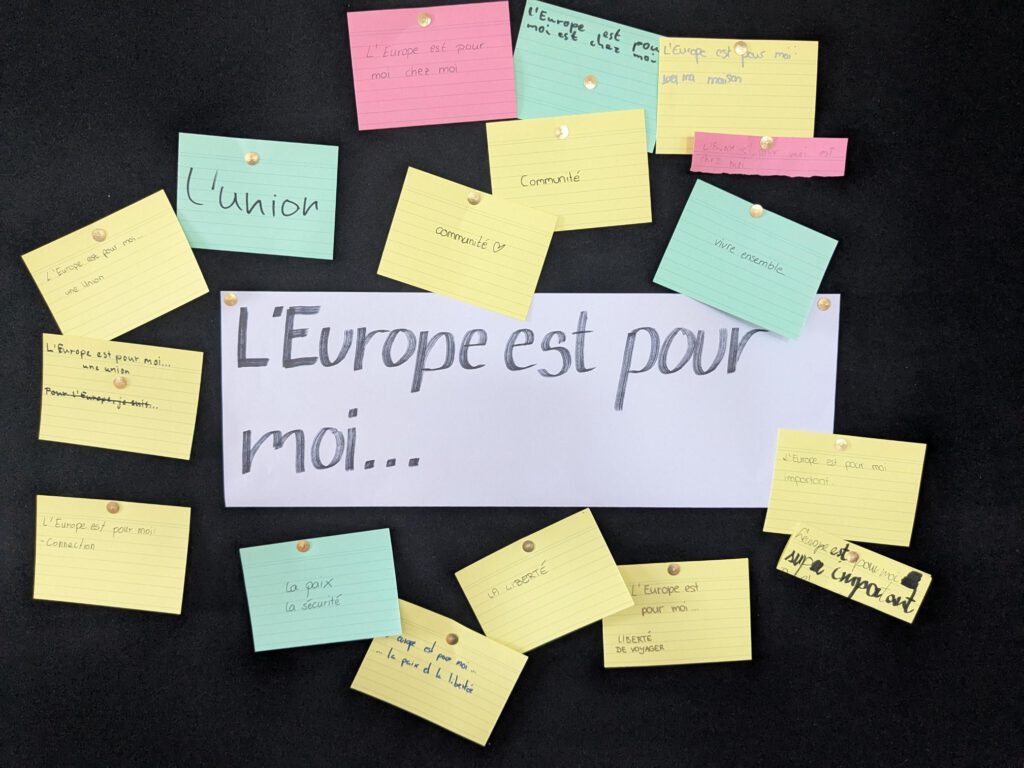 L'Europe est pour
moi chez moi
L'Europe est pour
moi est chez moi
L'Europe est pour moi:
ma maison
L'Europe pour moi est
chez moi
Communité
communité ♡
L'union
vivre ensemble
L'Europe est pour moi...
une Union
L'Europe est pour moi...
une union
Pour l'Europe, je suis...
L'Europe est pour
moi...
L'Europe est pour moi
important.
L'Europe est pour moi
supa important
L'Europe est pour moi:
-Connection
La paix
La sécurité
LA LIBERTÉ
L'Europe est
pour moi...
LIBERTÉ
DE VOYAGER
europe est pour moi...
... la paix et la liberté